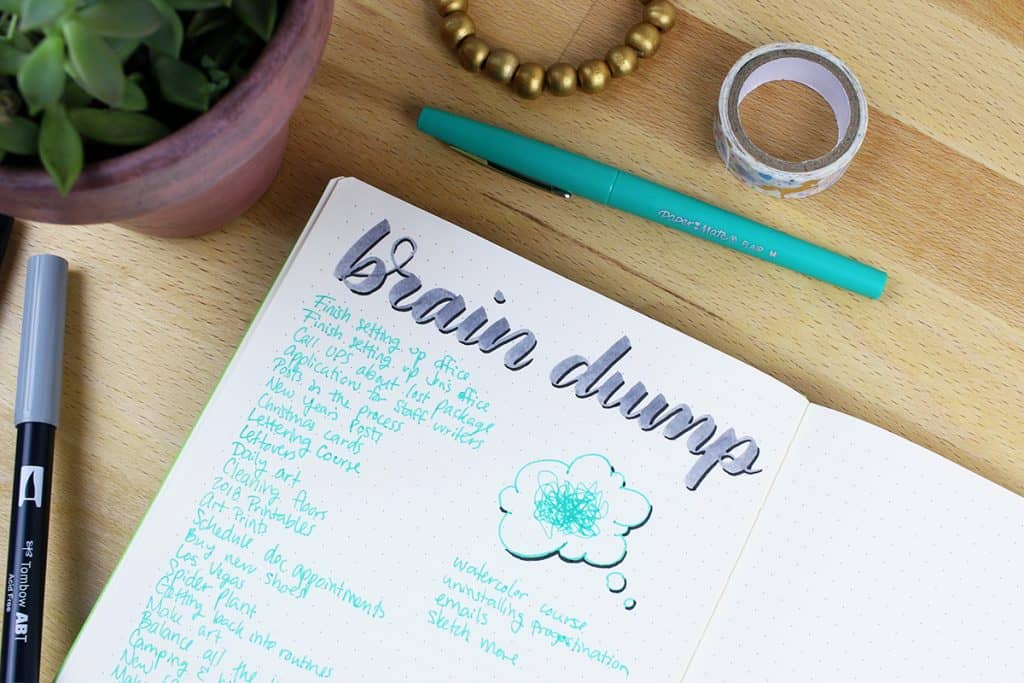 brain dump
Finish setting up office
Finish setting up Jn's office
Call UPS about lost package
applications for staff writers
Posts in the process
New years Post?
Christmas cards
Lettering course
Leftovers
Daily art
Cleaning floors
2018 Printables
Art Prints
Schedule doc appointments
Buy new shoes
Las Vegas
Spider Plant
Getting back into routines
Make art
Balance all the
Camping &
New
Make
watercolor course
uninstalling progestination
emails
sketch more
Paper Mate® FLAIR M
Tombow ABT
Acid Free